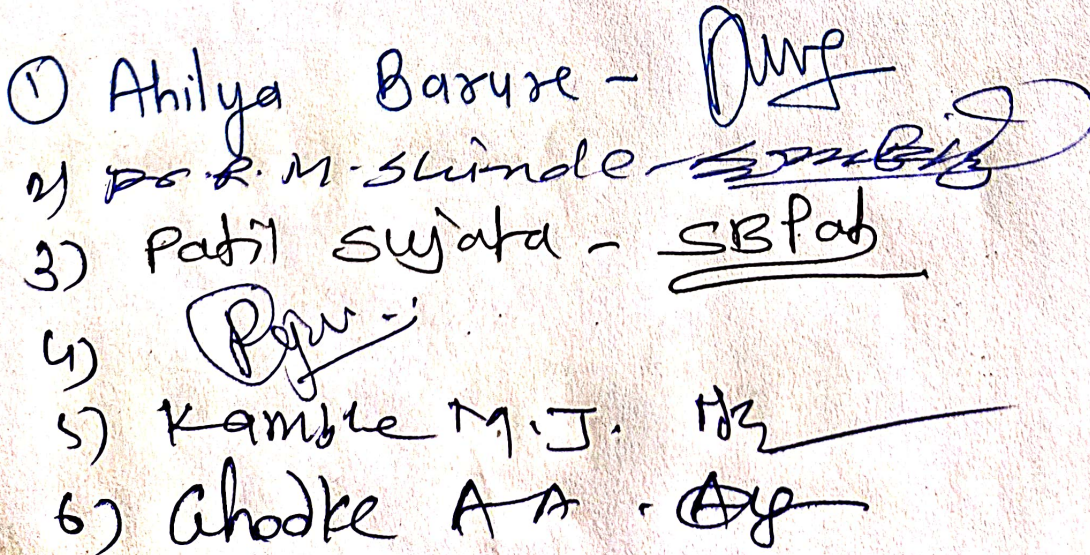 ① Ahilya Barure -
2) Dr. R. M. Shinde -
3) Patil Sujata - SBPat
4)
5) Kamble M.J.
6) Ghodke A A .